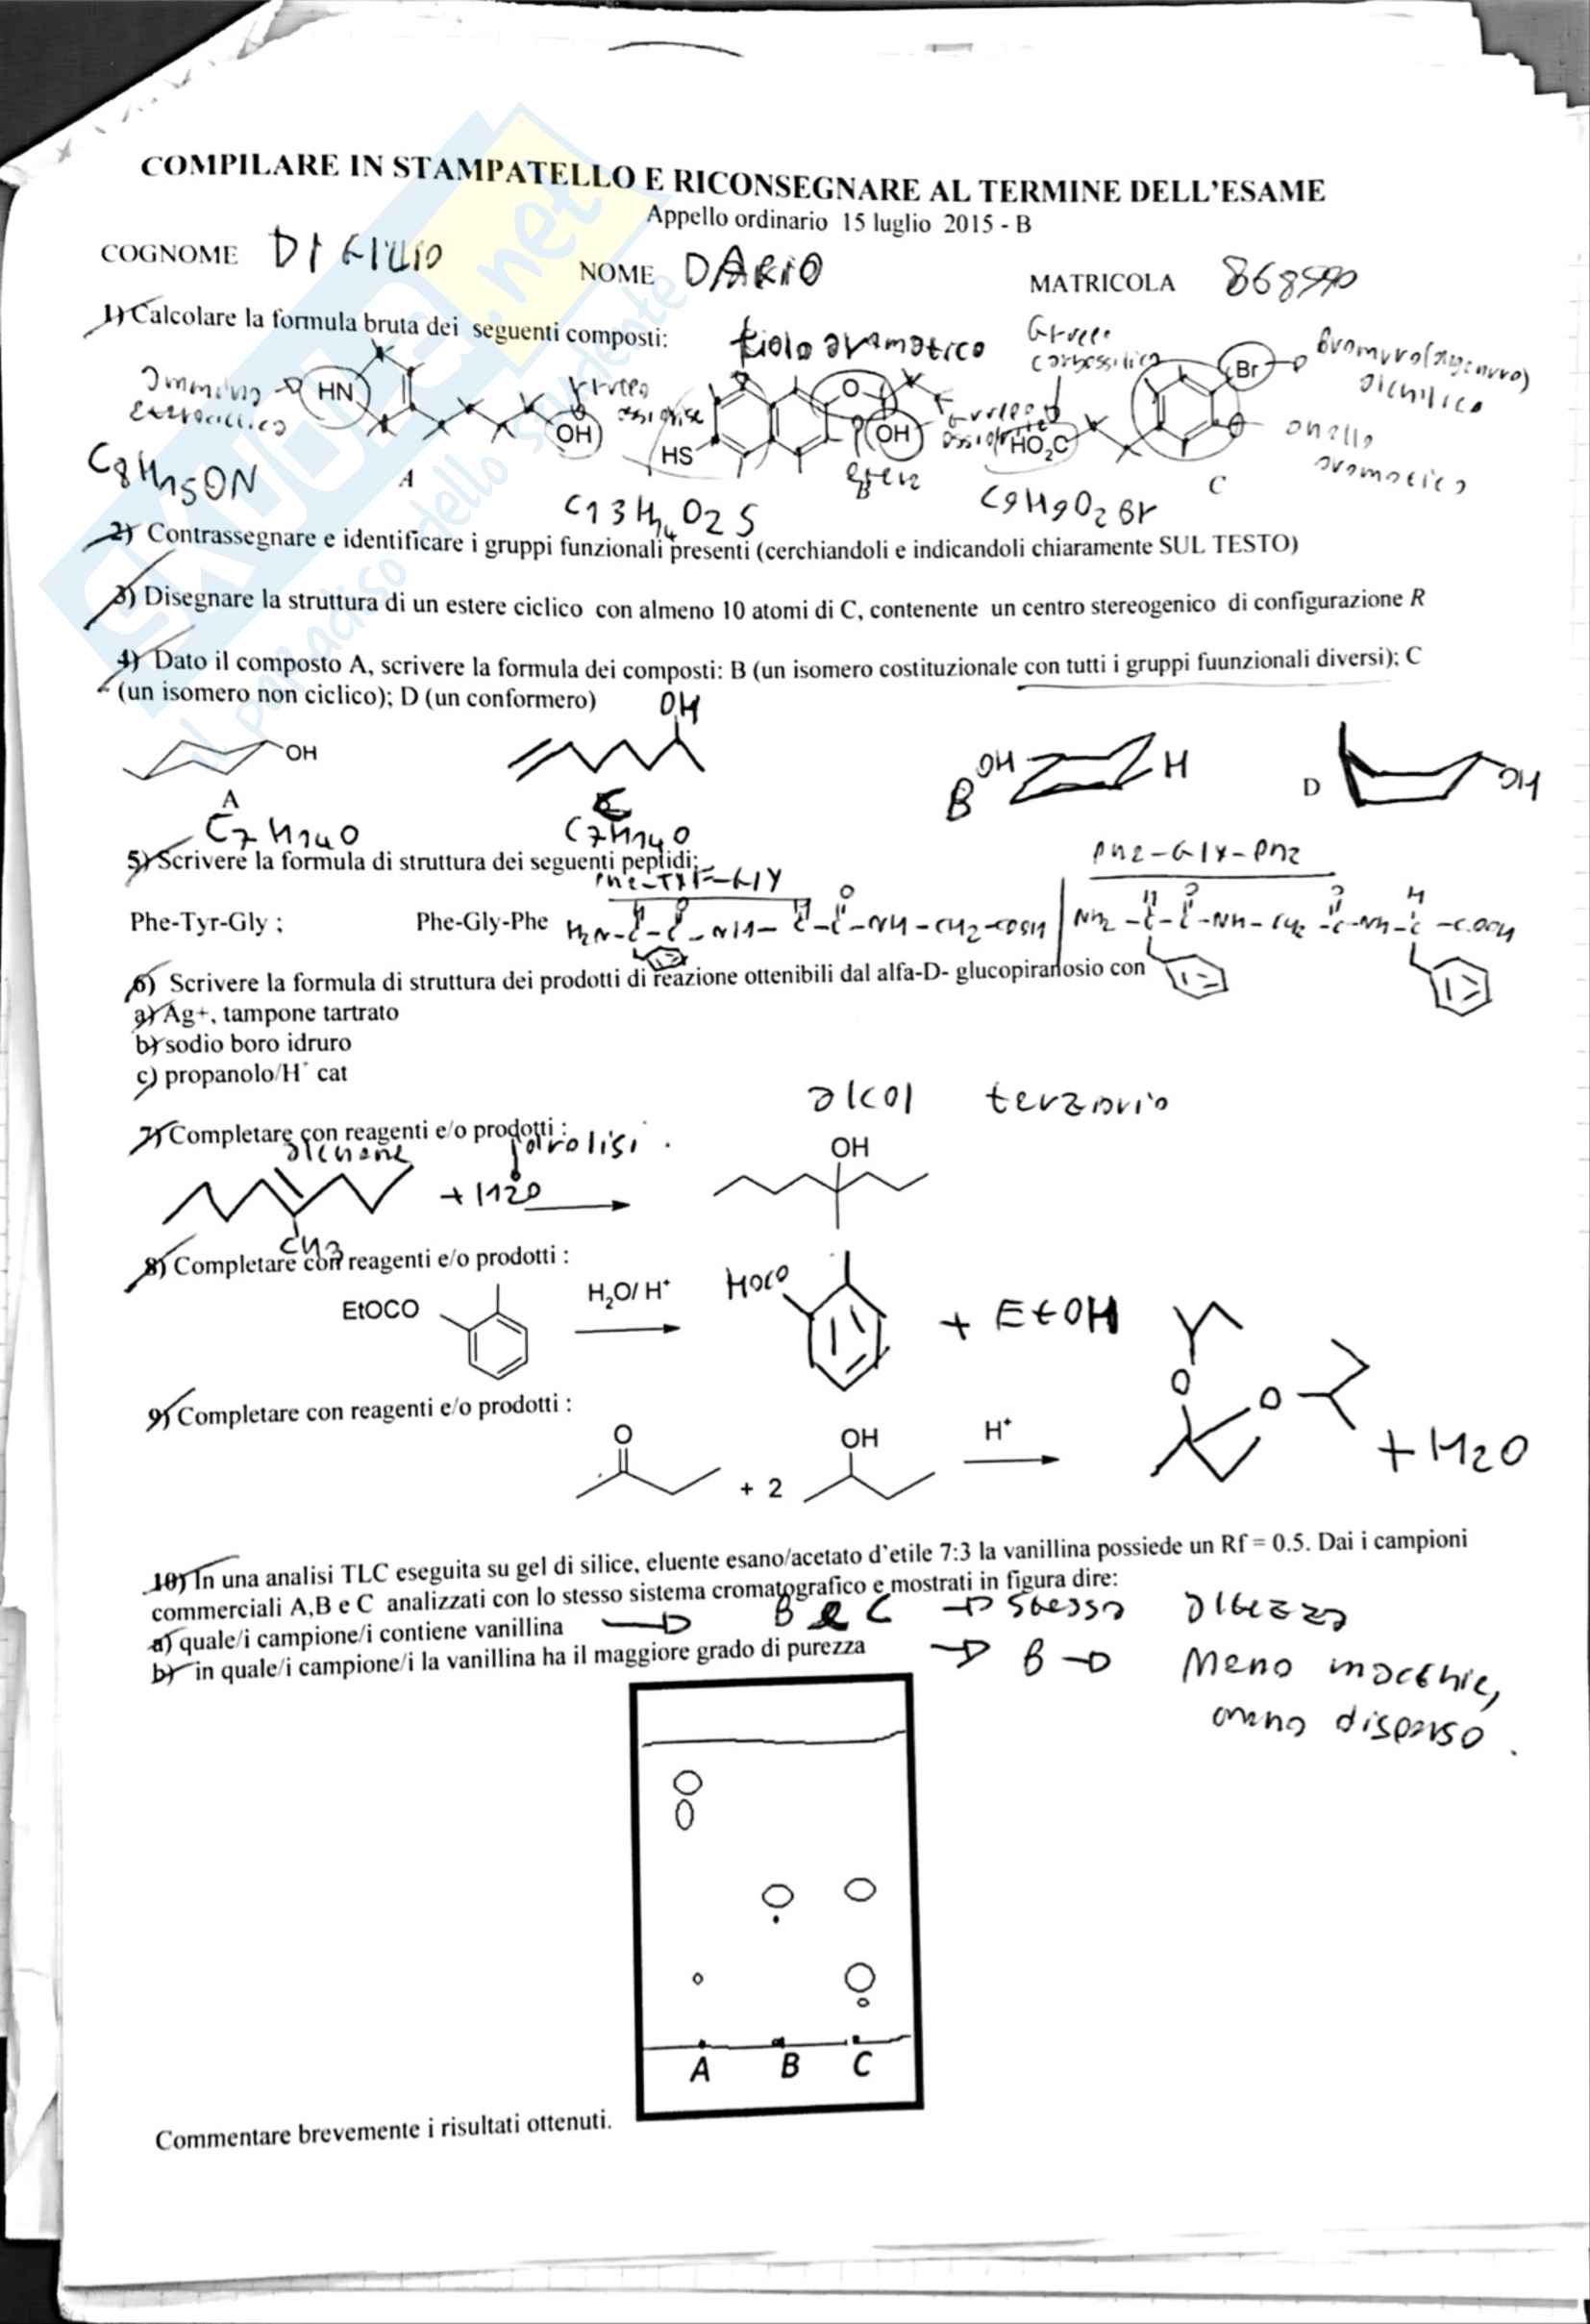 COMPILARE IN STAMPATELLO E RICONSEGNARE AL TERMINE DELL'ESAME
Appello ordinario 15 luglio 2015 - B
COGNOME DI GIULIO NOME DARIO MATRICOLA
1) Calcolare la formula bruta dei seguenti composti:
tiolo aromatico
HN OH HS O OH HO₂C Br
anello
aromatico
C8H15ON A C13H14O2S B C9H9O2Br C
2) Contrassegnare e identificare i gruppi funzionali presenti (cerchiandoli e indicandoli chiaramente SUL TESTO)
3) Disegnare la struttura di un estere ciclico con almeno 10 atomi di C, contenente un centro stereogenico di configurazione R
4) Dato il composto A, scrivere la formula dei composti: B (un isomero costituzionale con tutti i gruppi fuunzionali diversi); C
(un isomero non ciclico); D (un conformero)
OH OH OH H OH
A C B D
C7H14O C7H14O
5) Scrivere la formula di struttura dei seguenti peptidi:
Phe-Tyr-Gly Phe-Gly-Phe
Phe-Tyr-Gly ; Phe-Gly-Phe H2N-C-C-NH-C-C-NH-CH2-COOH NH2-C-C-NH-CH2-C-NH-C-COOH
6) Scrivere la formula di struttura dei prodotti di reazione ottenibili dal alfa-D- glucopiranosio con
a) Ag+, tampone tartrato
b) sodio boro idruro
c) propanolo/H⁺ cat
alcol terziario
7) Completare con reagenti e/o prodotti :
alchene idrolisi.
+ H2O OH
CH3
8) Completare con reagenti e/o prodotti :
EtOCO H₂O/ H⁺ HOCO + EtOH
9) Completare con reagenti e/o prodotti :
O + 2 OH H⁺ O O + H2O
10) In una analisi TLC eseguita su gel di silice, eluente esano/acetato d'etile 7:3 la vanillina possiede un Rf = 0.5. Dai i campioni
commerciali A,B e C analizzati con lo stesso sistema cromatografico e mostrati in figura dire:
a) quale/i campione/i contiene vanillina B e C stessa altezza
b) in quale/i campione/i la vanillina ha il maggiore grado di purezza B Meno macchie,
meno disperso.
A B C
Commentare brevemente i risultati ottenuti.
SKUOLA.net
il paradiso dello studente